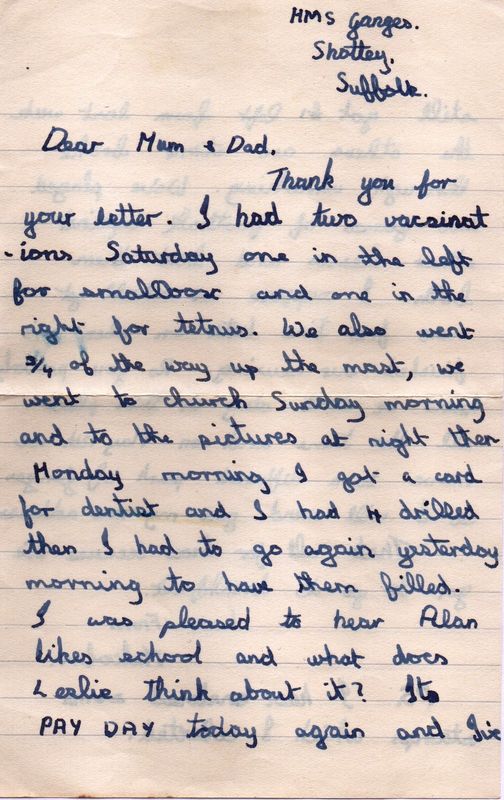 HMS Ganges.
Shottey,
Suffolk.
Dear Mum & Dad.
Thank you for
your letter. I had two vacsinat
-ions Saturday one in the left
for smallpox and one in the
right for tetnus. We also went
3/4 of the way up the mast, we
went to church Sunday morning
and to the pictures at night then
Monday morning I got a card
for dentist and I had 4 drilled
then I had to go again yesterday
morning to have them filled.
I was pleased to hear Alan
likes school and what does
Leslie think about it? Its
PAY DAY today again and I've